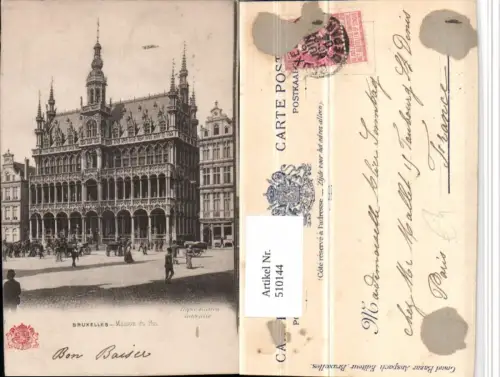 BRUXELLES — Maison du Roi
Bon Baiser
CARTE POSTALE
POSTKAART
(Côté réservé à l'adresse — Zijde voor het adres alleen)
Artikel Nr.
510144
Mademoiselle
chez Mr Mallet 15 Faubourg St Denis
Paris
France
Grand Bazar Anspach Editeur, Bruxelles.